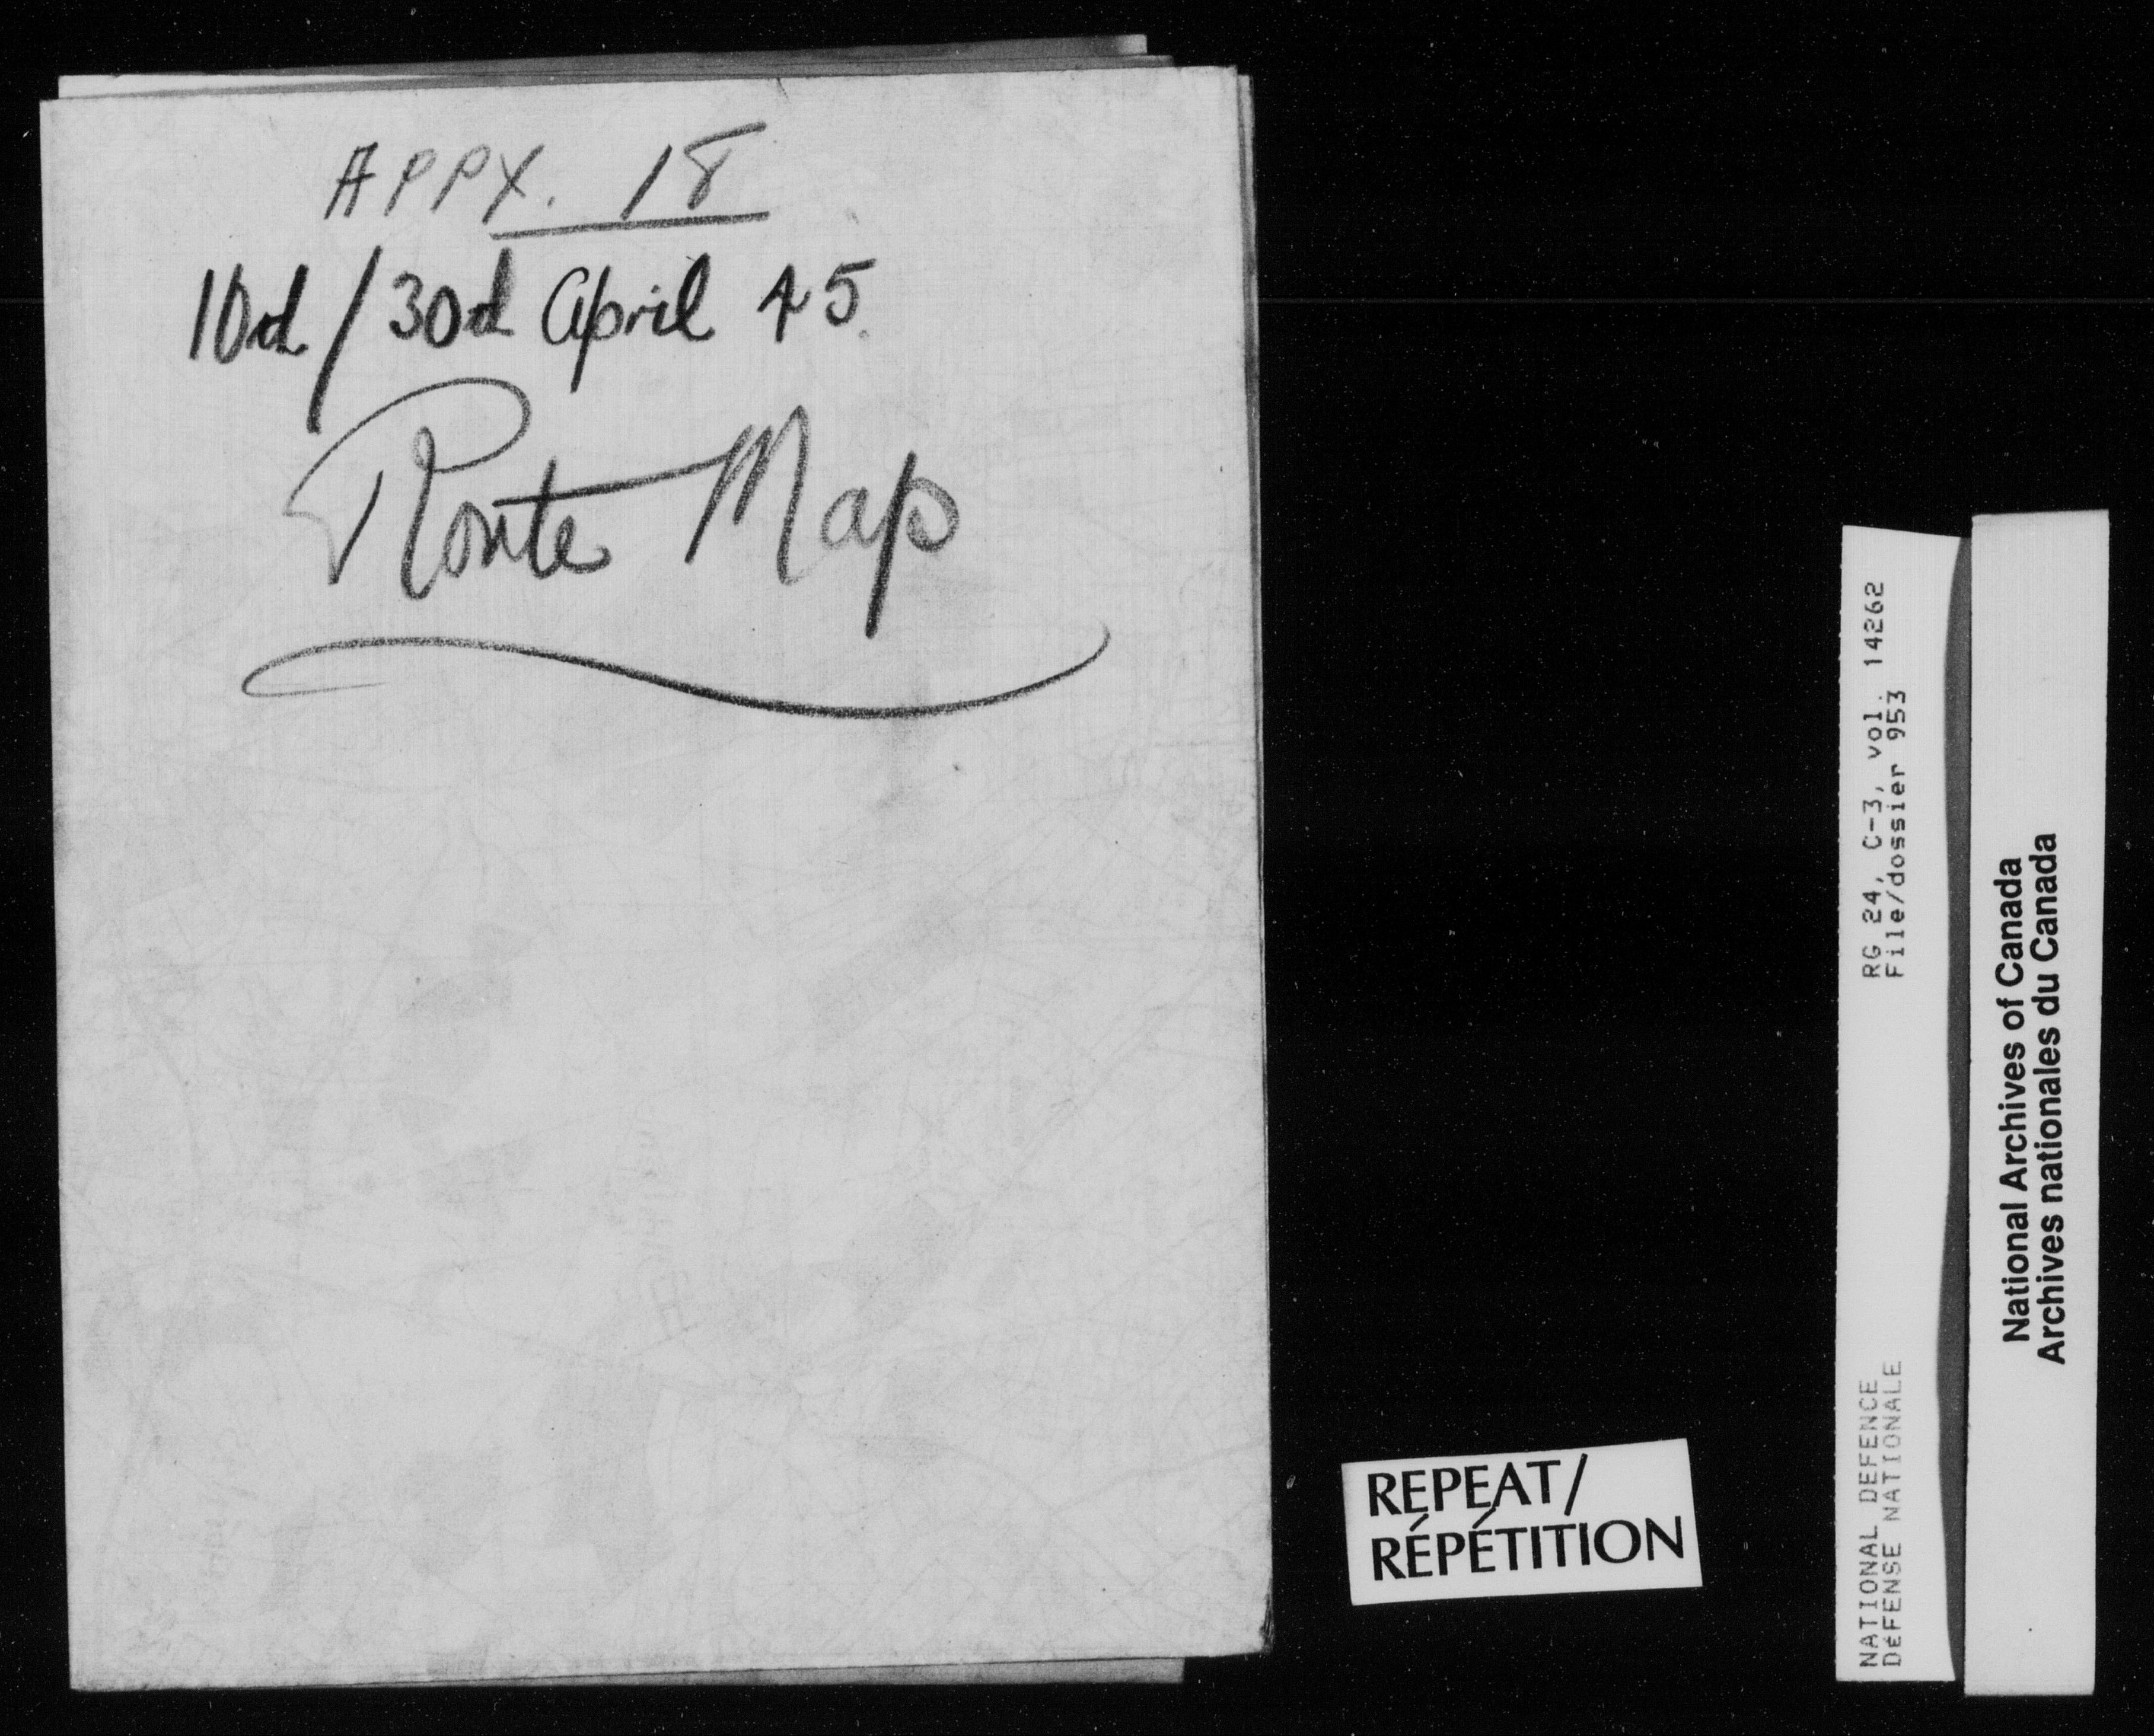 APPX. 18
10th/30th April 45.
Route Map
REPEAT/
RÉPÉTITION
RG 24, C-3, vol. 14262
File/dossier 953
NATIONAL DEFENCE
DÉFENSE NATIONALE
National Archives of Canada
Archives nationales du Canada